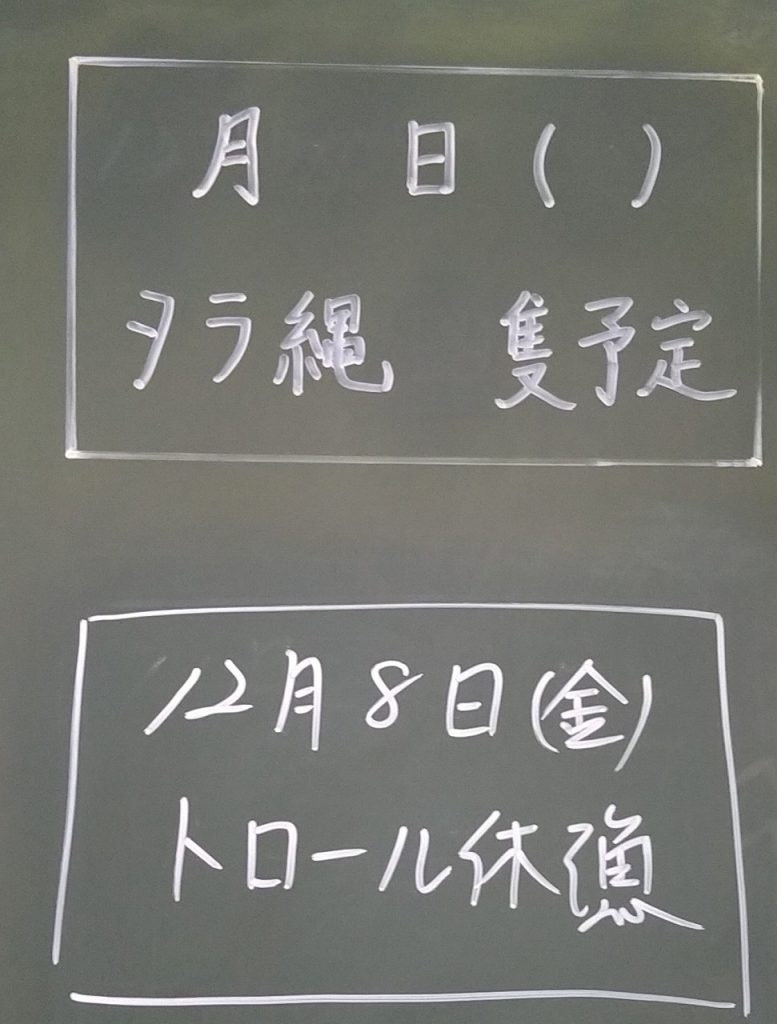 月 日( )
タラ縄 隻予定
12月8日(金)
トロール休漁